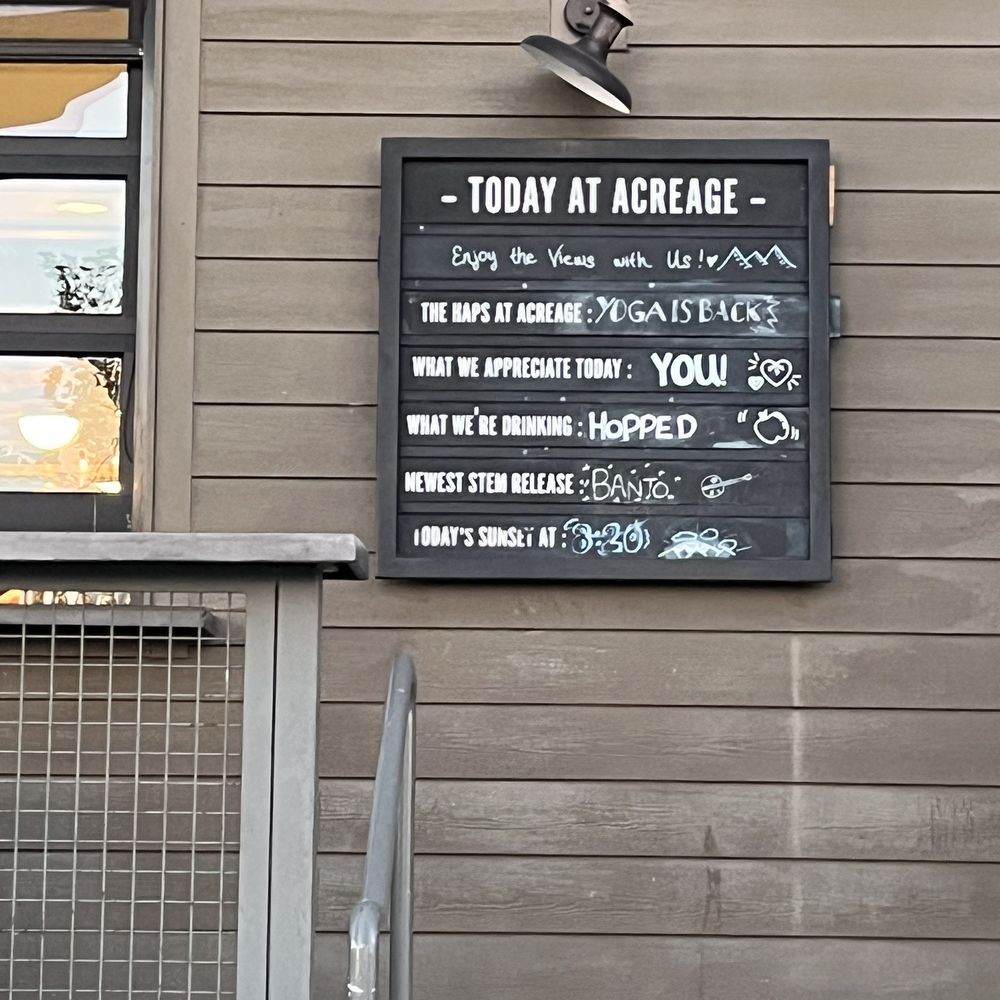 - TODAY AT ACREAGE -
Enjoy the Views with Us!
THE HAPS AT ACREAGE: YOGA IS BACK
WHAT WE APPRECIATE TODAY: YOU!
WHAT WE'RE DRINKING: HOPPED " "
NEWEST STEM RELEASE: BANJO
TODAY'S SUNSET AT: 8:20